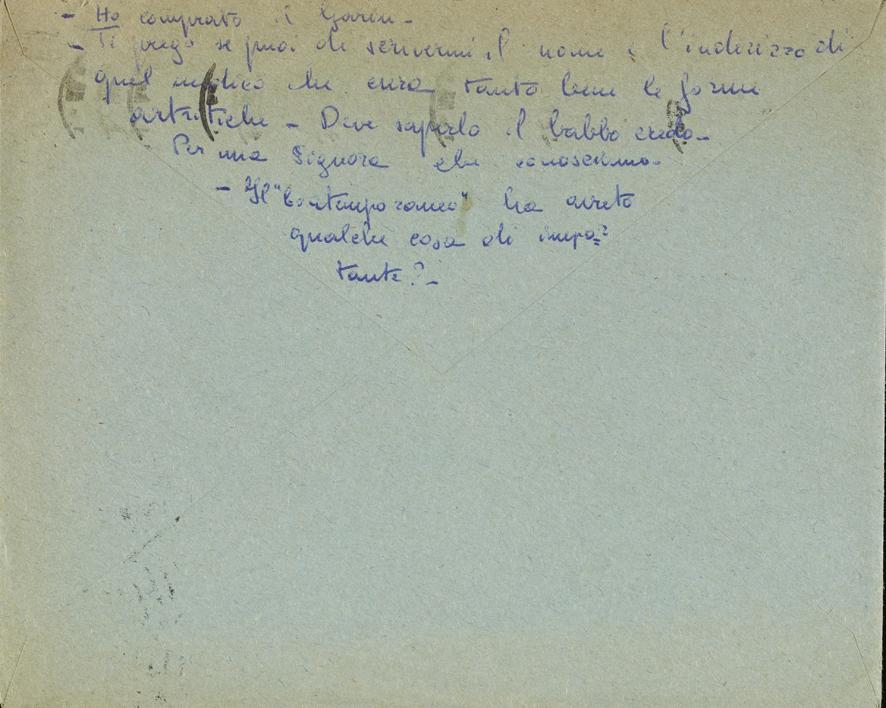 - Ho comprato il Garin -
- Ti prego se puoi di scrivermi il nome e l'inderizzo di
quel medico che cura tanto bene le forme
artritiche - Deve saperlo il babbo credo -
Per una Signora che conoscemmo -
- Il "Contemporaneo" ha avuto
qualche cosa di impo=
tante? -